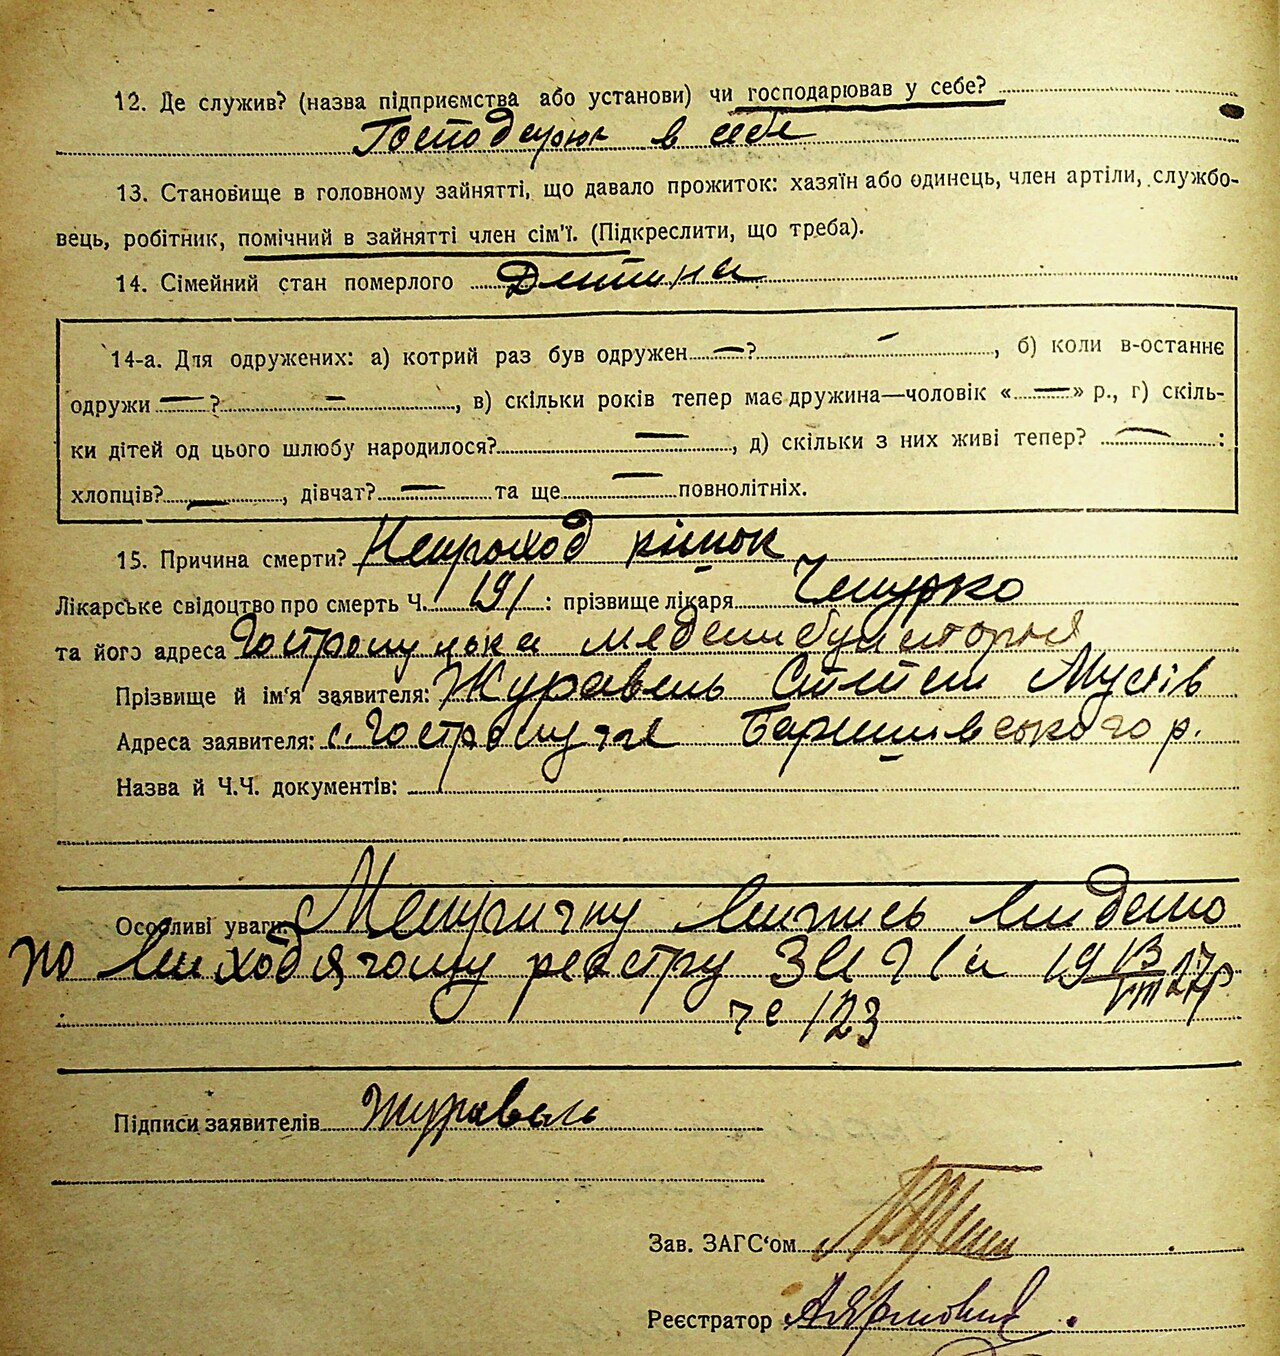 12. Де служив? (назва підприємства або установи) чи господарював у себе?
в себе
13. Становище в головному зайнятті, що давало прожиток: хазяїн або одинець, член артіли, службо-
вець, робітник, помічний в зайнятті член сім'ї. (Підкреслити, що треба).
14. Сімейний стан померлого Дитина
14-а. Для одружених: а) котрий раз був одружен — ? —, б) коли в-останнє
одружи — ? —, в) скільки років тепер має дружина—чоловік «—» р., г) скіль-
ки дітей од цього шлюбу народилося? —, д) скільки з них живі тепер? — :
хлопців? —, дівчат? — та ще — повнолітніх.
15. Причина смерти? Непроход кишок
Лікарське свідоцтво про смерть Ч. 191 : прізвище лікаря
та його адреса
Прізвище й ім'я заявителя: Журавель Степан
Адреса заявителя: с. Баришівського р.
Назва й Ч.Ч. документів:
Особливі уваги: Метричну випись видано
по виходячому реєстру ЗАГСа 19 13/VIII 27р
че 123
Підписи заявителів Журавель
Зав. ЗАГС'ом
Реєстратор